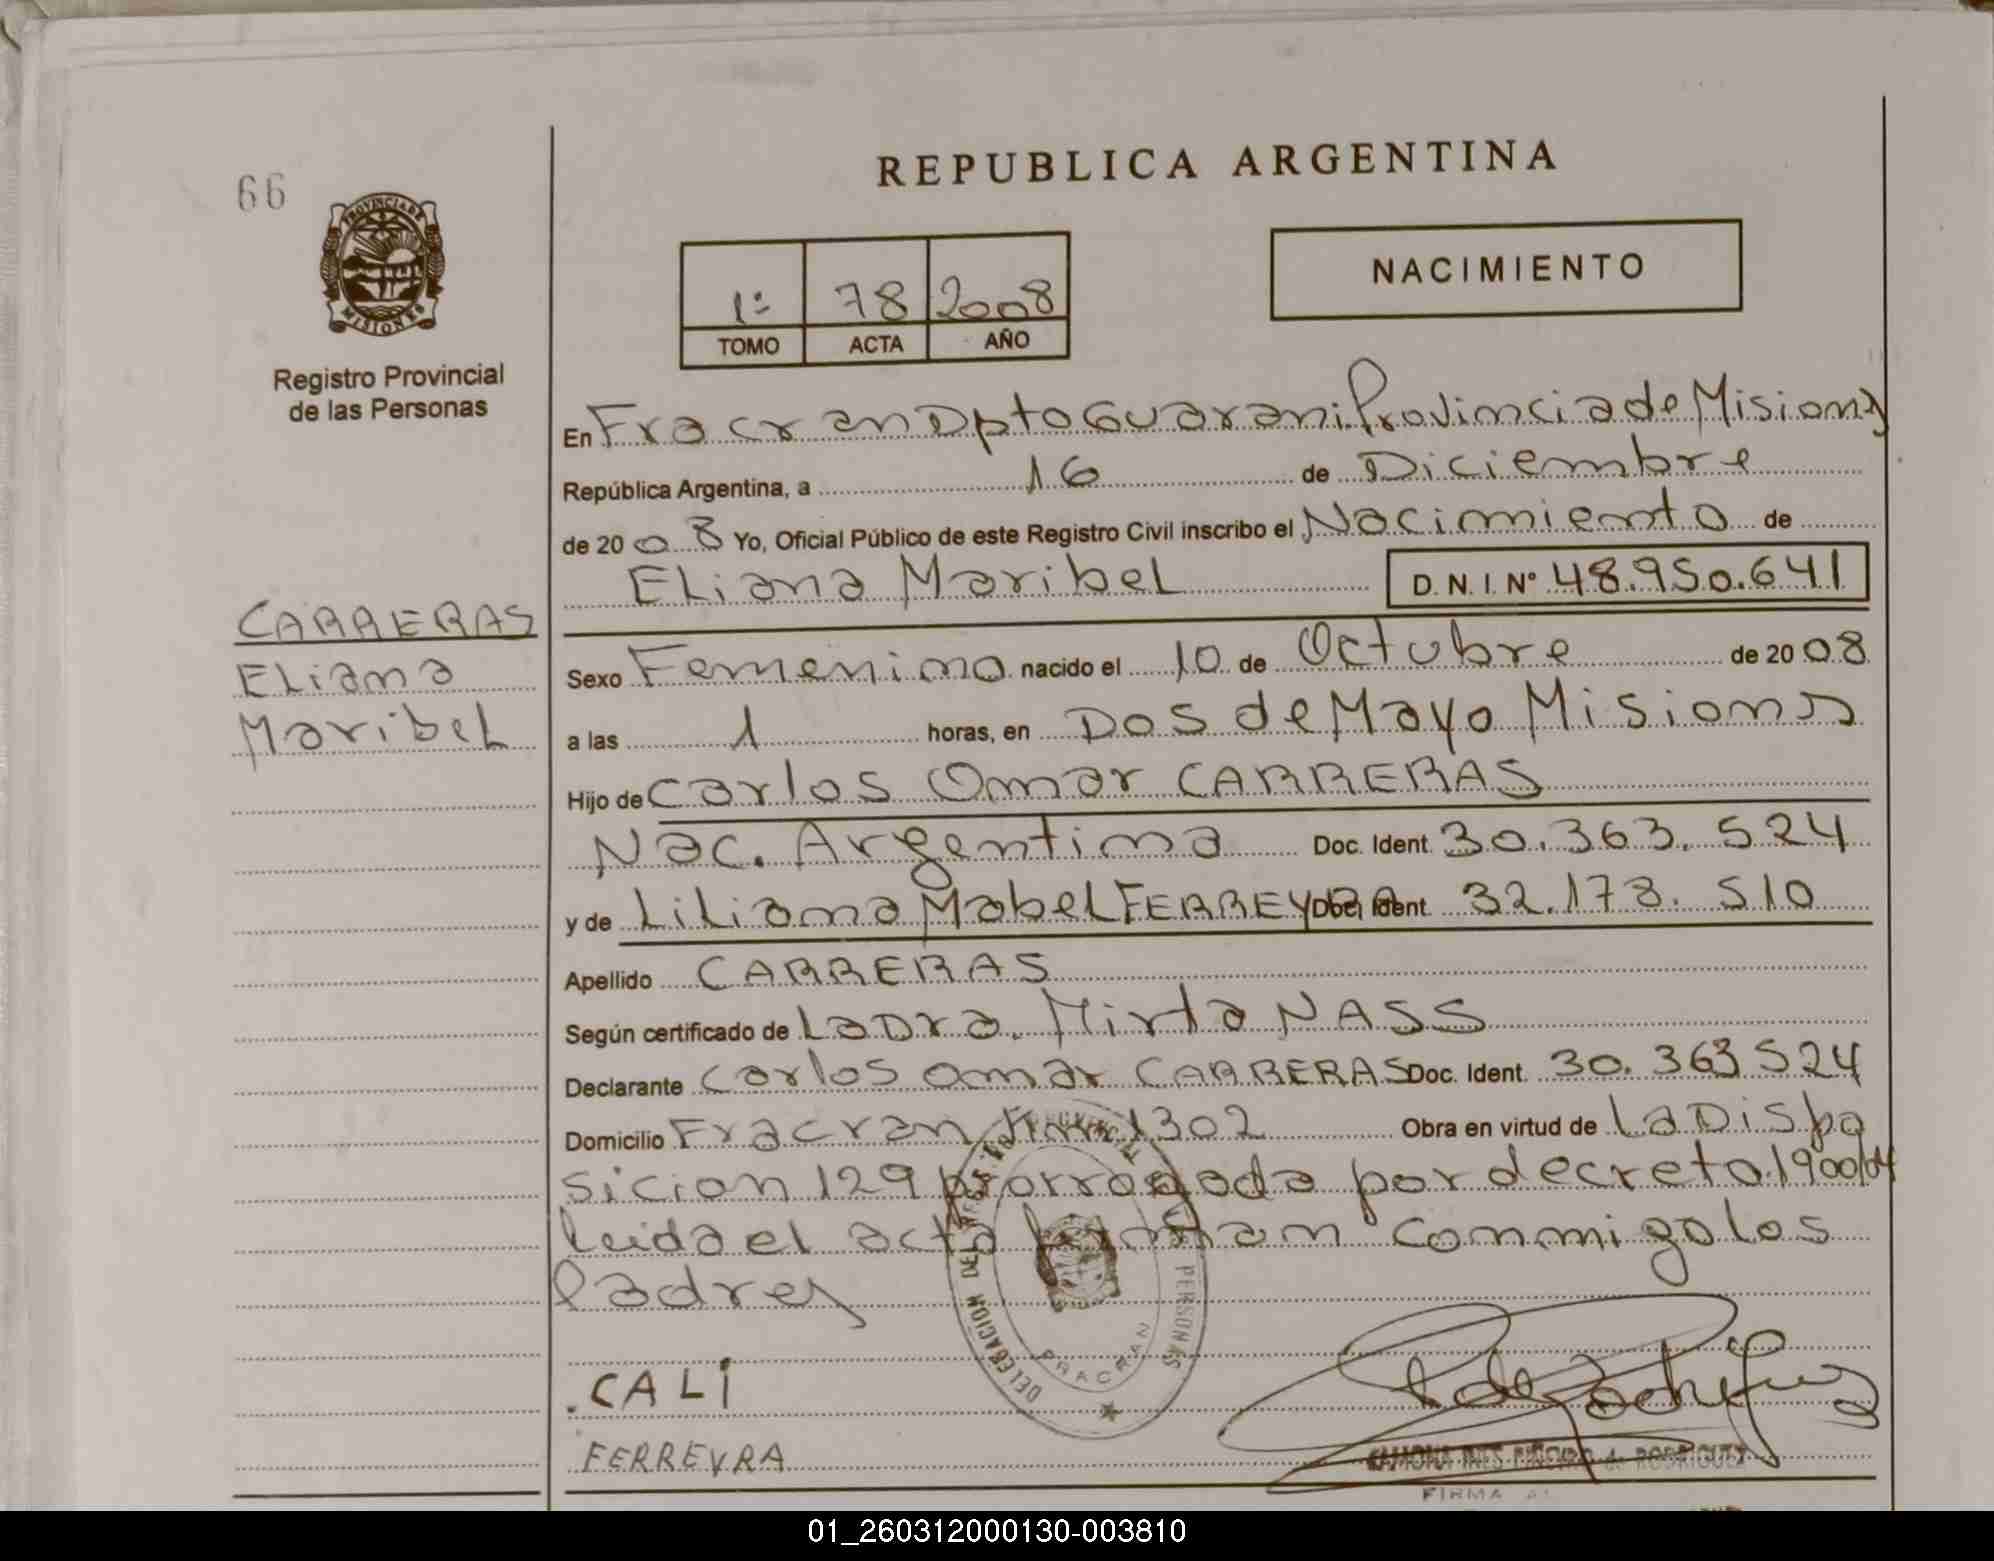 66
REPUBLICA ARGENTINA
PROVINCIA DE
MISIONES
Registro Provincial
de las Personas
1º 78 2008
TOMO ACTA AÑO
NACIMIENTO
En Fracran Dpto Guarani Provincia de Misiones
República Argentina, a 16 de Diciembre
de 2008 Yo, Oficial Público de este Registro Civil inscribo el Nacimiento de
Eliana Maribel D.N.I. Nº 48.950.641
CARRERAS
Eliana
Maribel
Sexo Femenino nacido el 10 de Octubre de 2008
a las 1 horas, en Dos de Mayo Misiones
Hijo de Carlos Omar CARRERAS
Nac. Argentina Doc. Ident. 30.363.524
y de Liliana Mabel FERREYRA Doc. Ident. 32.178.510
Apellido CARRERAS
Según certificado de La Dra. Mirta NASS
Declarante Carlos Omar CARRERAS Doc. Ident. 30.363.524
Domicilio Fracran Km 1302 Obra en virtud de La Dispo
sicion 129 prorrogada por decreto 1900/04
leida el acta firman conmigo los
Padres
DELEGACION DEL PERSONAS
FRACRAN
CALI
FERREYRA
RAMONA INES PIÑEIRO de RODRIGUEZ
FIRMA
01_260312000130-003810